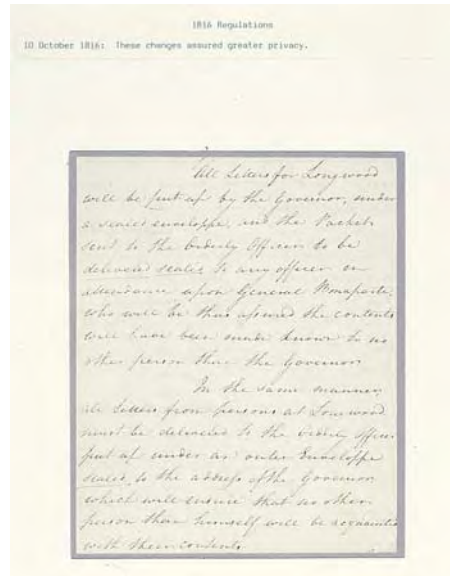 1816 Regulations
10 October 1816: These changes assured greater privacy.
All Letters for Longwood
will be put up by the Governor, under
a sealed enveloppe, and the Packet
sent to the Orderly Officer to be
delivered sealed to any officer in
attendance upon General Bonaparte,
who will be thus assured the contents
will have been made known to no
other person than the Governor
In the same manner,
all Letters from persons at Longwood
must be delivered to the Orderly Officer
put up under an outer Enveloppe
sealed, to the address of the Governor
which will ensure that no other
person than himself will be acquainted
with their contents